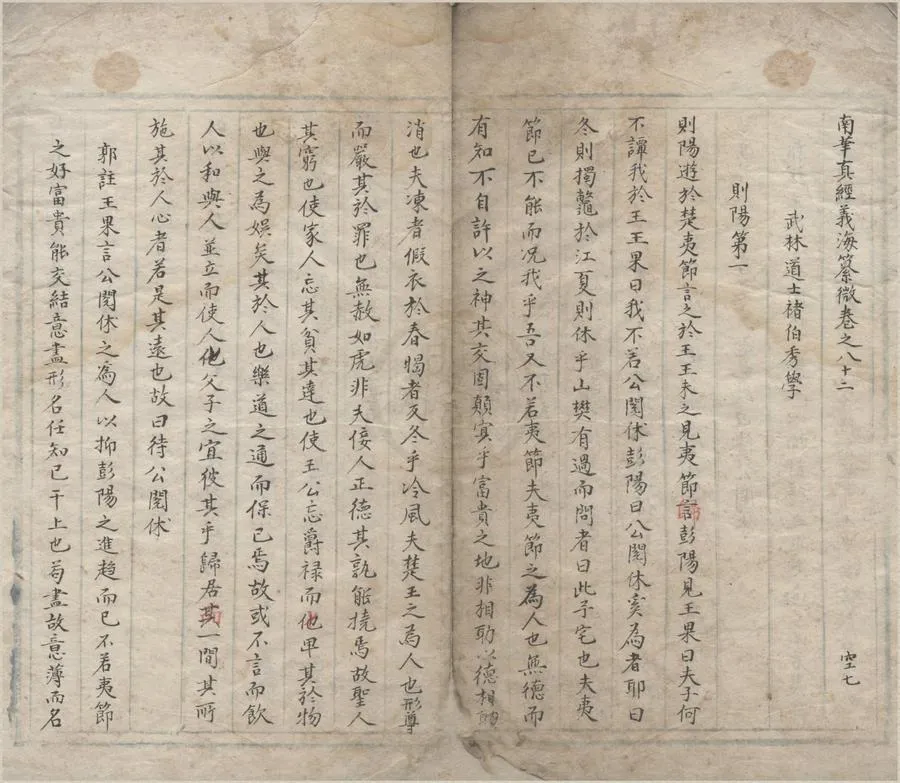 南華真經義海纂微卷之八十二 空七
武林道士褚伯秀學
則陽第一
則陽遊於楚夷節言之於王王未之見夷節言彭陽見王果曰夫子何
不譚我於王王果曰我不若公閱休彭陽曰公閱休奚為者耶曰
冬則擉鼈於江夏則休乎山樊有過而問者曰此予宅也夫夷
節已不能而况我乎吾又不若夷節夫夷節之為人也無德而
有知不自許以之神其交固顛冥乎富貴之地非相助以德相助
消也夫凍者假衣於春暍者反冬乎冷風夫楚王之為人也形尊
而嚴其於罪也無赦如虎非夫佞人正德其孰能撓焉故聖人
其窮也使家人忘其貧其達也使王公忘爵禄而化卑其於物
也與之為娱矣其於人也樂道之通而保已焉故或不言而飲
人以和與人並立而使人化父子之宜彼其乎歸居其一間其所
施其於人心者若是其遠也故曰待公閱休
郭註王果言公閱休之為人以抑彭陽之進趨而已不若夷節
之好富貴能交結意盡形名任知已干上也苟盡故意薄而名